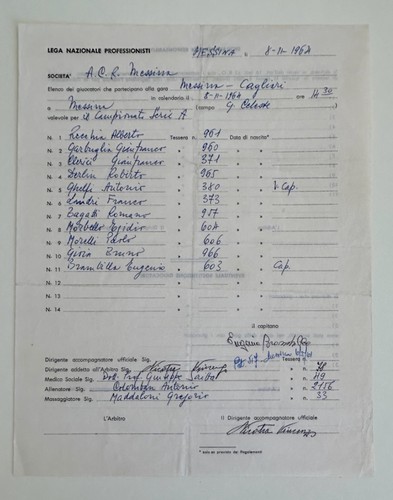 LEGA NAZIONALE PROFESSIONISTI MESSINA li 8-11-1964
SOCIETA' A.C.R. Messina
Elenco dei giuocatori che partecipano alla gara Messina - Cagliari
in calendario il 8-11-1964 ore 14 30
a Messina (campo G. Celeste
valevole per il Campionato Serie A
N. 1 Recchia Alberto Tessera n. 961 Data di nascita*
N. 2 Garbuglia Gianfranco » 960
N. 3 Clerici Gianfranco » 371
N. 4 Derlin Roberto » 965
N. 5 Ghelfi Antonio » 380 » V. Cap.
N. 6 Landri Franco » 373
N. 7 Bagatti Romano » 957
N. 8 Morbello Egidio » 604
N. 9 Morelli Paolo » 606
N. 10 Gioia Bruno » 966
N. 11 Brambilla Eugenio » 603 Cap.
N. 12
N. 13
N. 14
il capitano
Eugenio Brambilla
Dirigente accompagnatore ufficiale Sig. Tessera n.
Dirigente addetto all'Arbitro Sig. » n. 78
Medico Sociale Sig. Dott. Prof. Giuseppe » n. 49
Allenatore Sig. Colomban Antonio » n. 2156
Massaggiatore Sig. Maddaloni Gregorio » n. 33
L'Arbitro Il Dirigente accompagnatore ufficiale